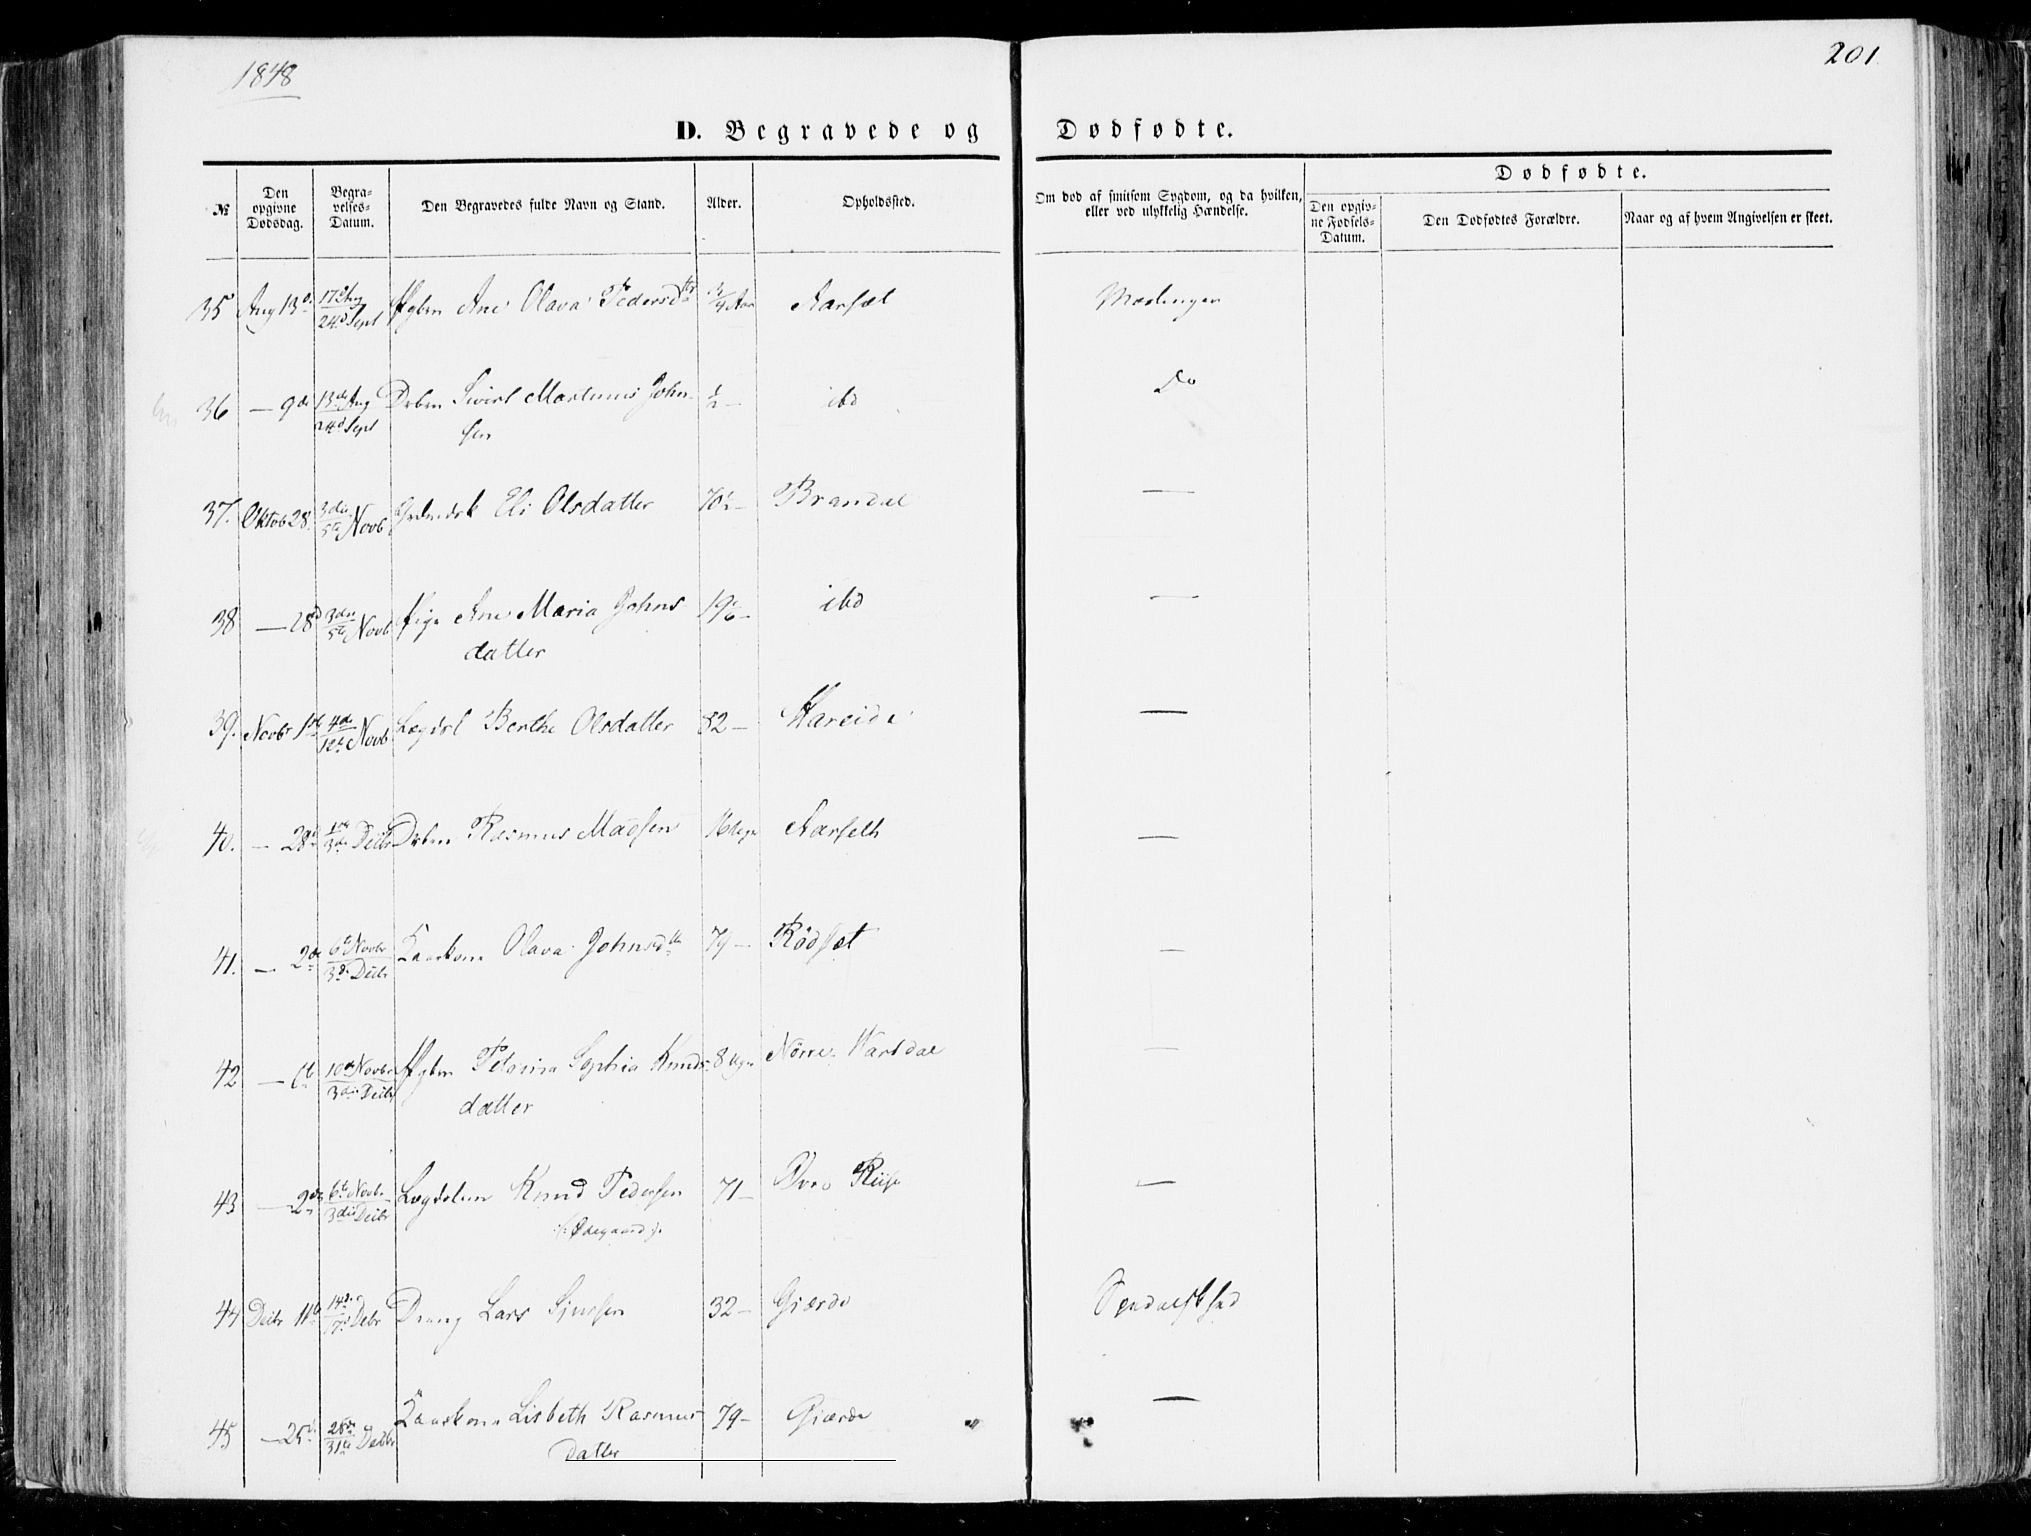 1848
201
D. Begravede og Dødfødte.
№
Den opgivne Dødsdag.
Begravelses-Datum.
Den Begravedes fulde Navn og Stand.
Alder.
Opholdssted.
Om død af smitsom Sygdom, og da hvilken, eller ved ulykkelig Hændelse.
Dødfødte.
Den opgivne Fødsels-Datum.
Den Dødfødtes Forældre.
Naar og af hvem Angivelsen er skeet.
35 Aug 13d 17d Aug 24d Sept Pgbn Ane Olava Pedersdtr 3/4 Aar Aarsæt Mæslinger
36 — 9de 13de Aug 24d Sept Drbn Sivert Martinus John- 1/2 — ibd Do
sen
37. Oktob 28. 3die 5te Novb Eli Olsdatter 70 1/2 — Brandal —
38 — 28d 3die 5te Novb Pige Ane Maria Johns 19 — ibd —
datter
39. Novbr 1ste 4de 12te Novb Lægdsl Berthe Olsdatter 82 — Hareide —
40. — 28de 1ste 3die Decbr Drbn Rasmus Madsen 16 Uger Aarseth —
41. — 2den 6te Novbr 3die Decbr Kaarkone Olava Johnsdtr 79 — Rødsæt —
42 — 10de Novbr 3die Decbr Pgbn Petrina Sophia Knuds- 8 Uger Nörre Vartdal —
datter
43 — 2den 6te Novbr 3die Decbr Lægdslem Knud Pedersen 71 — Øvre Riise —
/: Ødegaard :/
44 Decbr 11te 14de 17de Debr Dreng Lars Sjursen 32 — Gjærde Spedalskhed
45 — 25de 28de 31te Decbr Kaarkone Lisbeth Rasmus- 79 — Gjærde —
datter